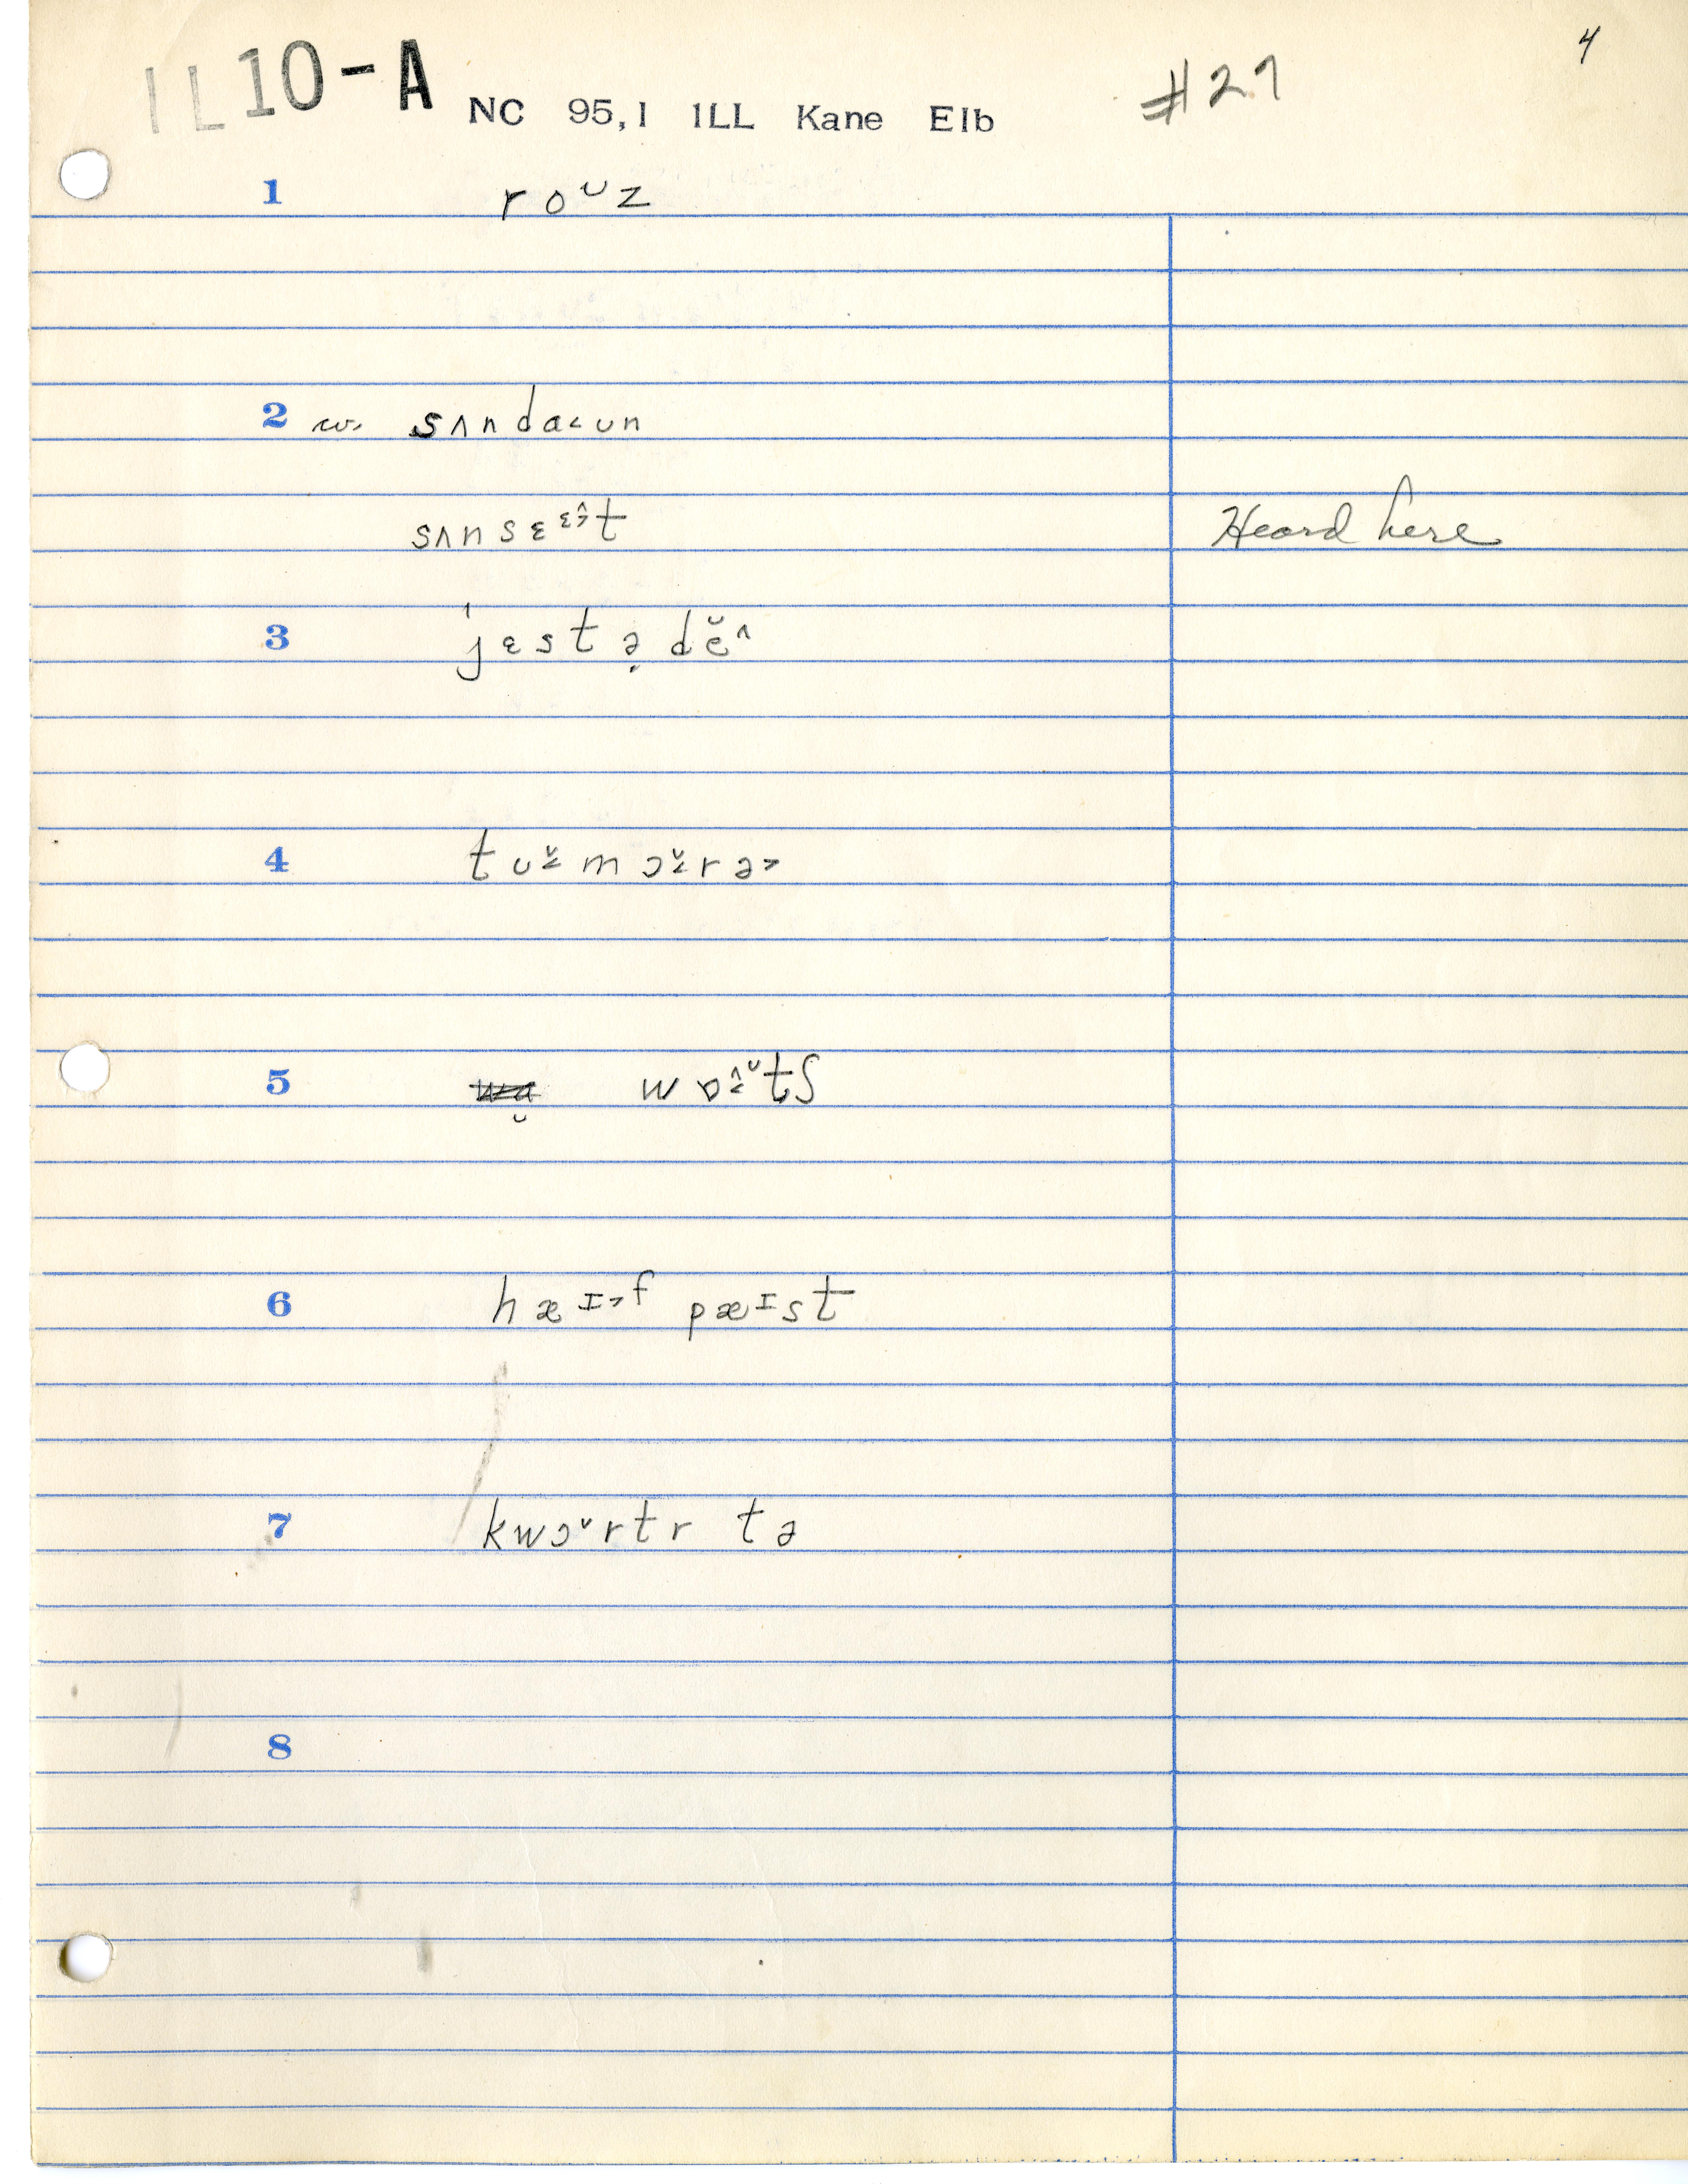 4
IL10-A NC 95,1 ILL Kane Elb #27
1 roᴜz
2 w. sʌnda˂ᴜn
sʌnsɛᵋ̂˃t Heard here
3 ˈjɛstə̣dĕ^
4 tᴜ˅˂mɔ˅˂rə˃
5 wɒ^˂ᶷtʃ
6 hæɪ˃f pæɪst
7 kwɔ˅rtr tə
8